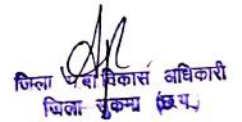 जिला विकास अधिकारी
जिला सुकमा (छ.ग.)